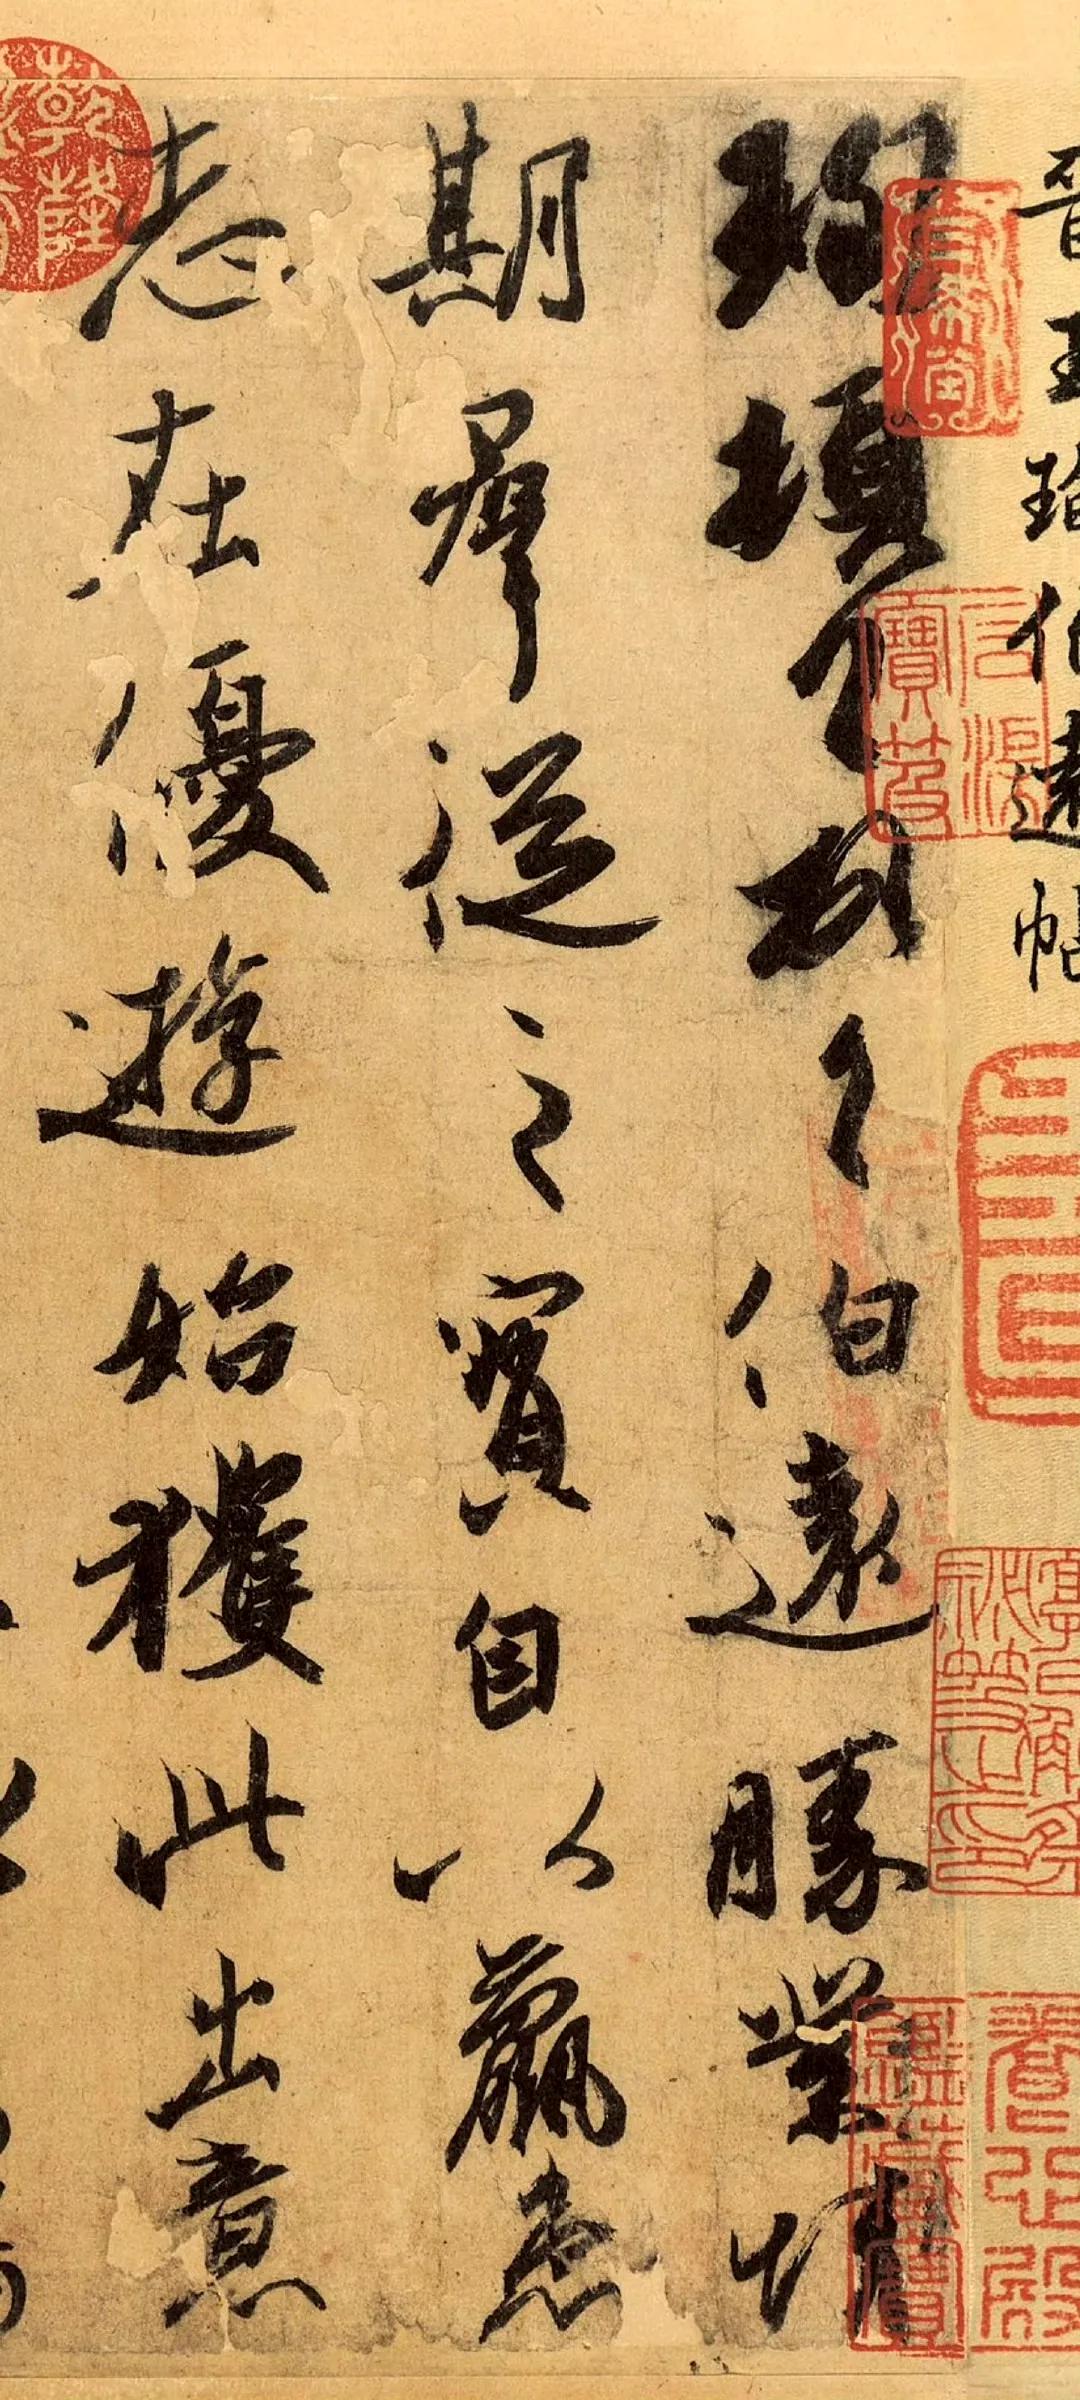 晉王珣伯遠帖
珣頓首頓首伯遠勝業情
期羣從之寶自以羸患
志在優遊始獲此出意